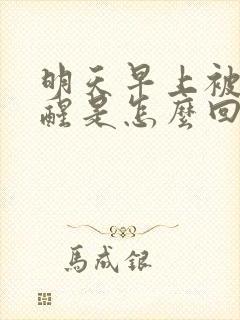 明天早上被
醒是怎麼回
馬成銀